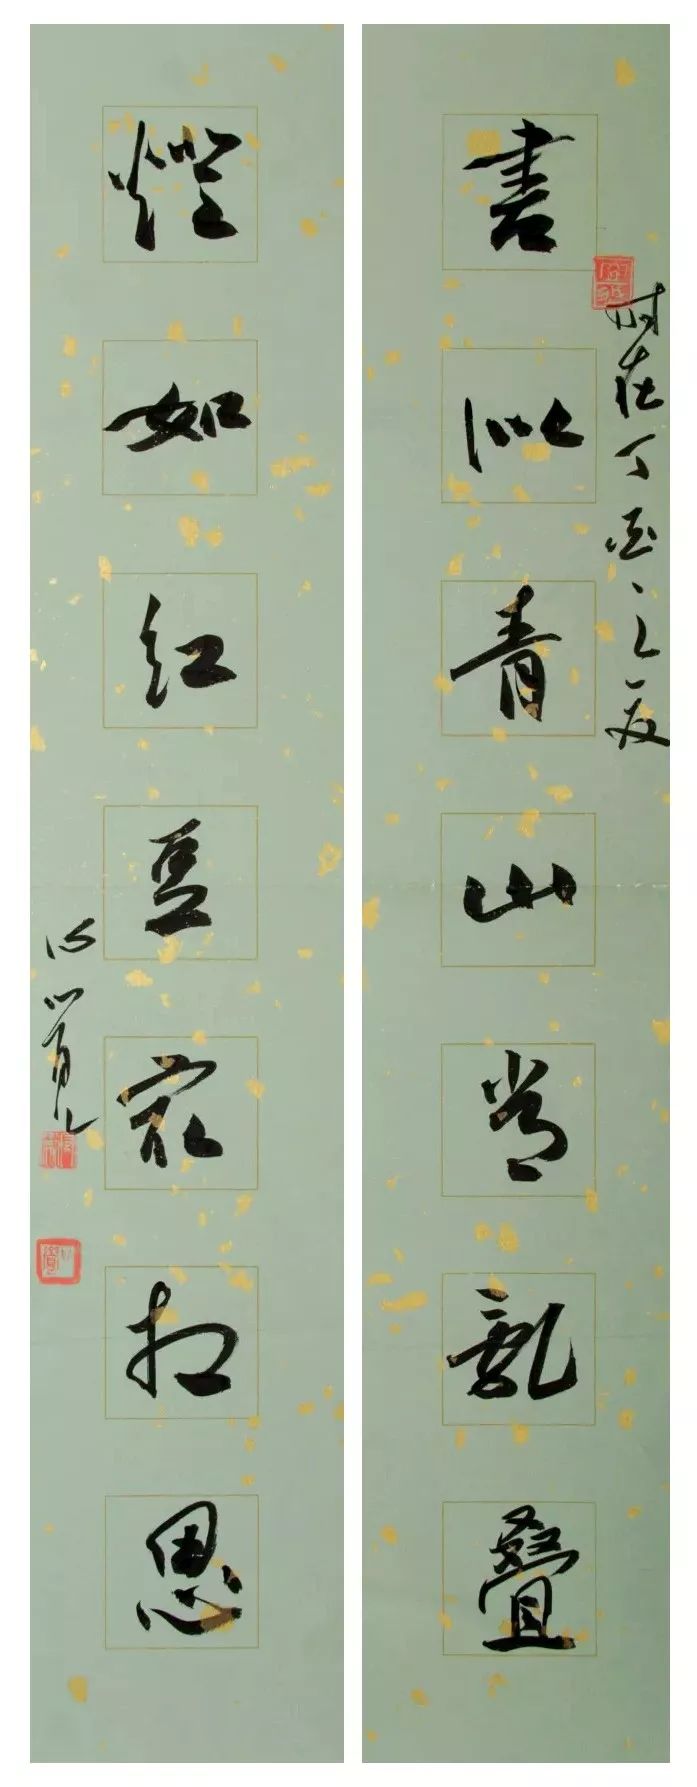 書似青山常亂疊
燈如紅豆最相思
時在丁酉之夏